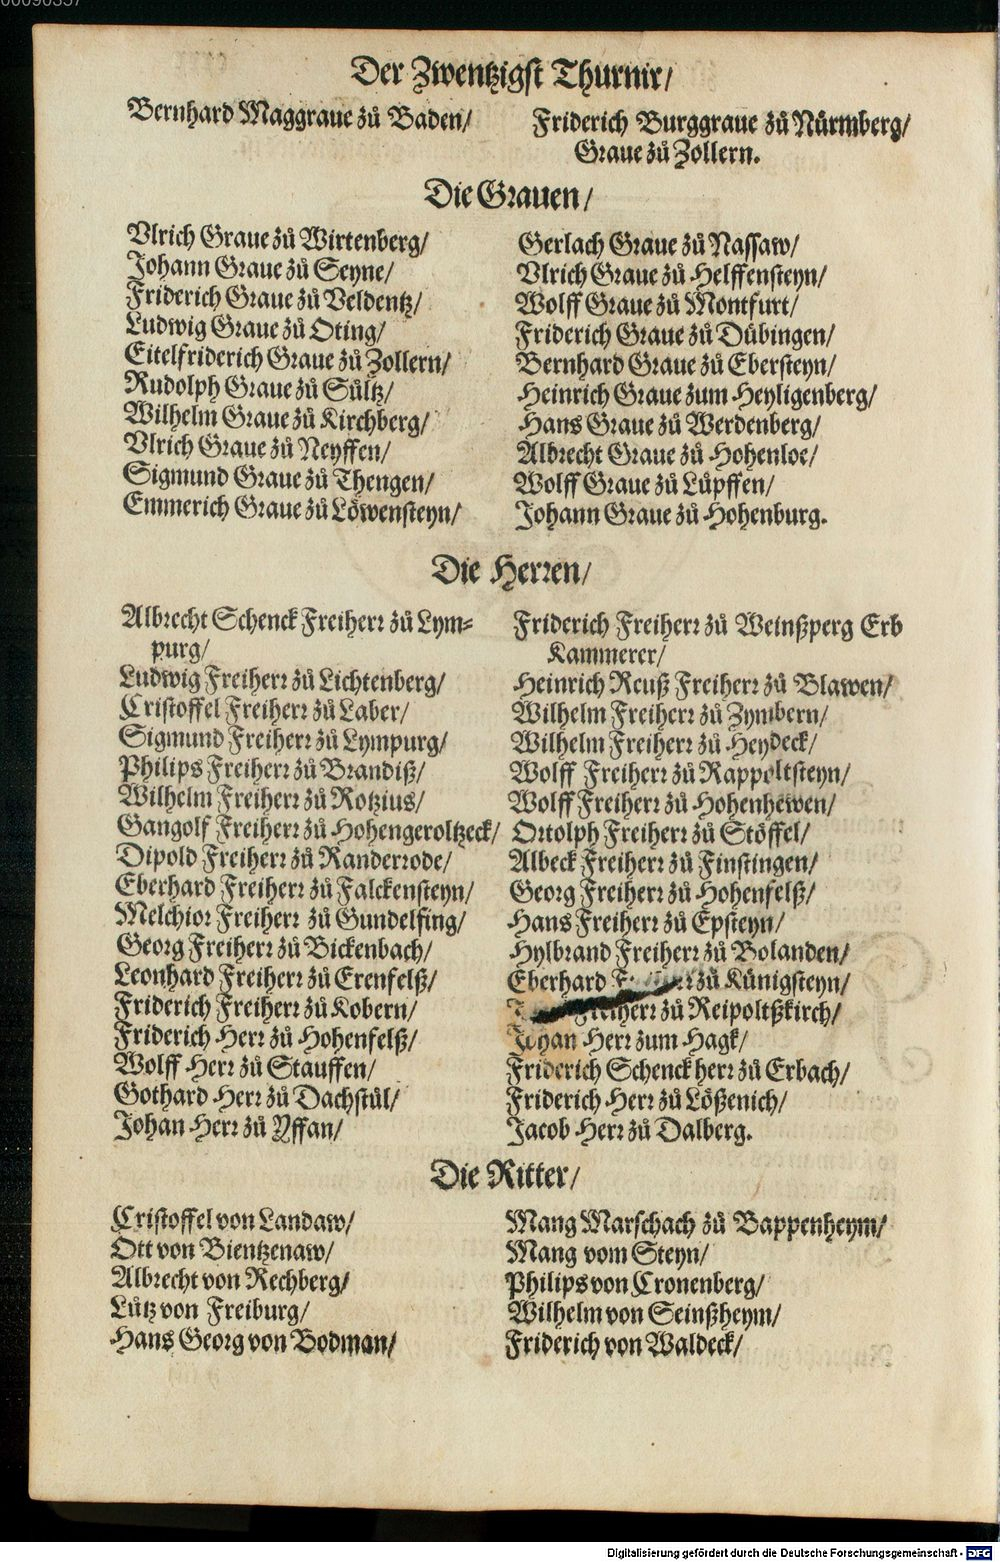 00090357
Der Zwentzigst Thurnir/
Bernhard Maggraue zů Baden/
Friderich Burggraue zů Nürmberg/
Graue zů Zollern.
Die Grauen/
Vlrich Graue zů Wirtenberg/
Johann Graue zů Seyne/
Friderich Graue zů Veldentz/
Ludwig Graue zů Oting/
Eitelfriderich Graue zů Zollern/
Rudolph Graue zů Sültz/
Wilhelm Graue zů Kirchberg/
Vlrich Graue zů Neyffen/
Sigmund Graue zů Thengen/
Emmerich Graue zů Löwensteyn/
Gerlach Graue zů Nassaw/
Vlrich Graue zů Helffensteyn/
Wolff Graue zů Montfurt/
Friderich Graue zů Dübingen/
Bernhard Graue zů Ebersteyn/
Heinrich Graue zum Heyligenberg/
Hans Graue zů Werdenberg/
Albrecht Graue zů Hohenloe/
Wolff Graue zů Lüpffen/
Johann Graue zů Hohenburg.
Die Herren/
Albrecht Schenck Freiherr zů Lym-
purg/
Ludwig Freiherr zů Lichtenberg/
Cristoffel Freiherr zů Laber/
Sigmund Freiherr zů Lympurg/
Philips Freiherr zů Brandiß/
Wilhelm Freiherr zů Rotzius/
Gangolf Freiherr zů Hohengeroltzeck/
Dipold Freiherr zů Randerrode/
Eberhard Freiherr zů Falckensteyn/
Melchior Freiherr zů Gundelfing/
Georg Freiherr zů Bickenbach/
Leonhard Freiherr zů Erenfelß/
Friderich Freiherr zů Kobern/
Friderich Herr zů Hohenfelß/
Wolff Herr zů Stauffen/
Gothard Herr zů Dachstůl/
Johan Herr zů Yffan/
Friderich Freiherr zů Weinßperg Erb
Kammerer/
Heinrich Reuß Freiherr zů Blawen/
Wilhelm Freiherr zů Zymbern/
Wilhelm Freiherr zů Heydeck/
Wolff Freiherr zů Rappoltsteyn/
Wolff Freiherr zů Hohenhewen/
Ortolph Freiherr zů Stöffel/
Albeck Freiherr zů Finstingen/
Georg Freiherr zů Hohenfelß/
Hans Freiherr zů Epsteyn/
Hylbrand Freiherr zů Bolanden/
Eberhard zů Künigsteyn/
Freiherr zů Reipoltßkirch/
Johan Herr zum Hagk/
Friderich Schenck herr zů Erbach/
Friderich Herr zů Lößenich/
Jacob Herr zů Dalberg.
Die Ritter/
Cristoffel von Landaw/
Ott von Bientzenaw/
Albrecht von Rechberg/
Lůtz von Freiburg/
Hans Georg von Bodman/
Mang Marschach zů Bappenheym/
Mang vom Steyn/
Philips von Cronenberg/
Wilhelm von Seinßheym/
Friderich von Waldeck/
Digitalisierung gefördert durch die Deutsche Forschungsgemeinschaft - DFG